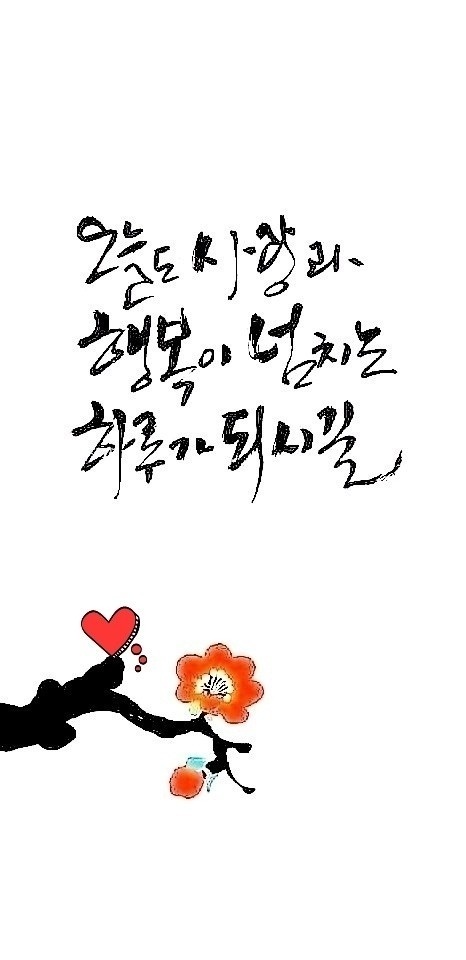 오늘도 사랑과
행복이 넘치는
하루가 되시길